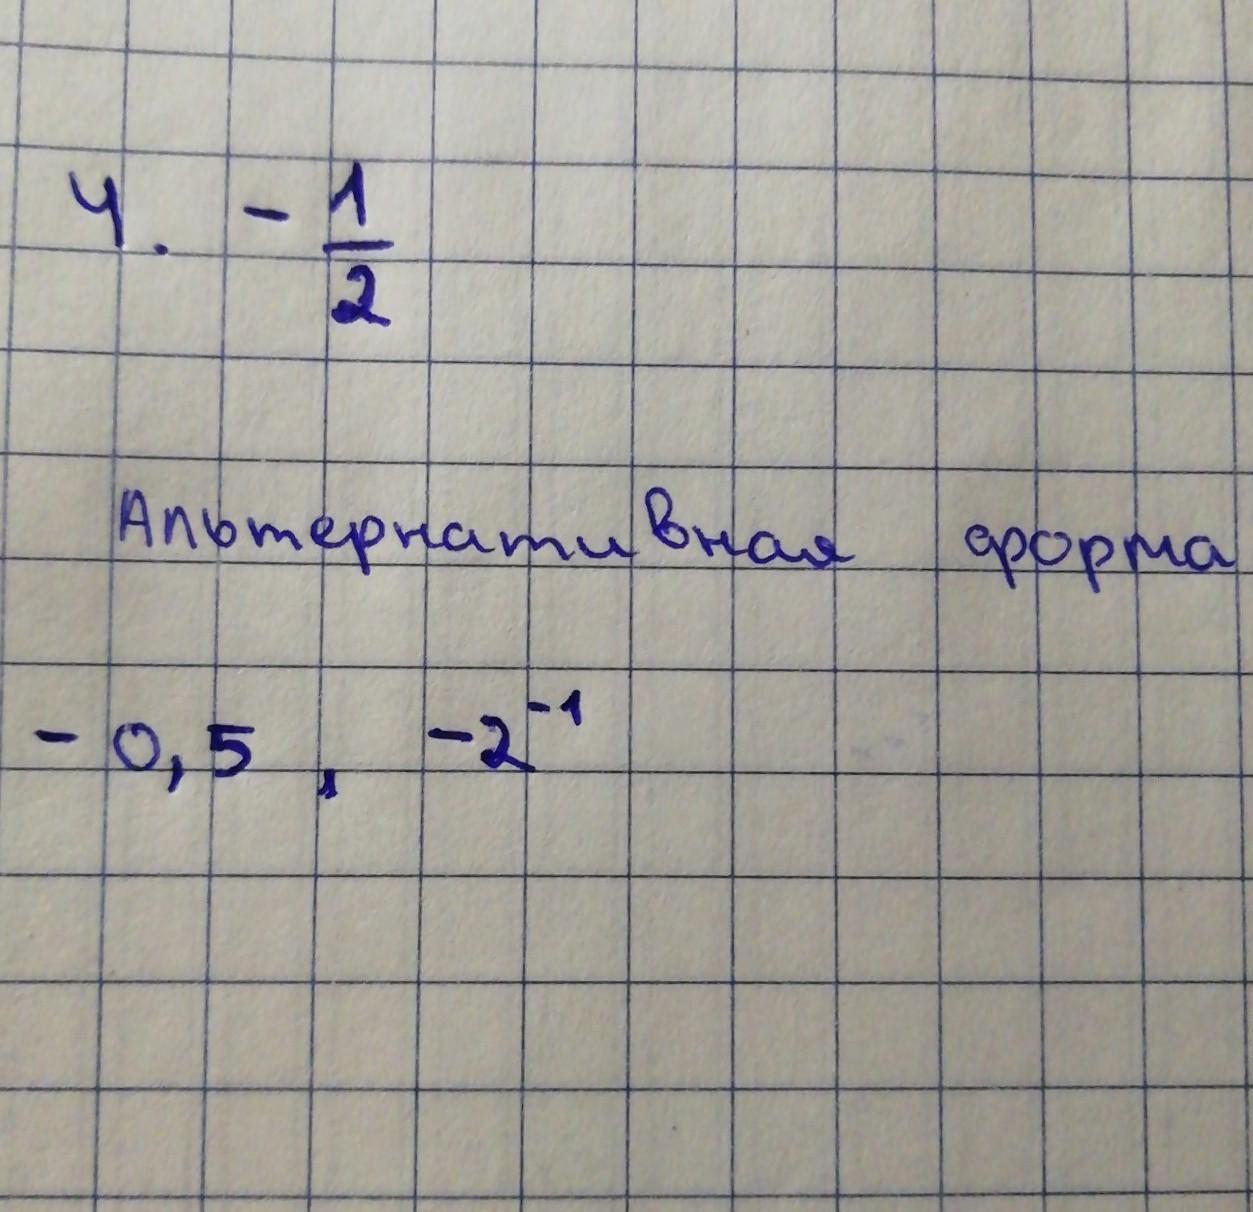 4. - 1/2
Альтернативная форма
- 0,5 , -2⁻¹